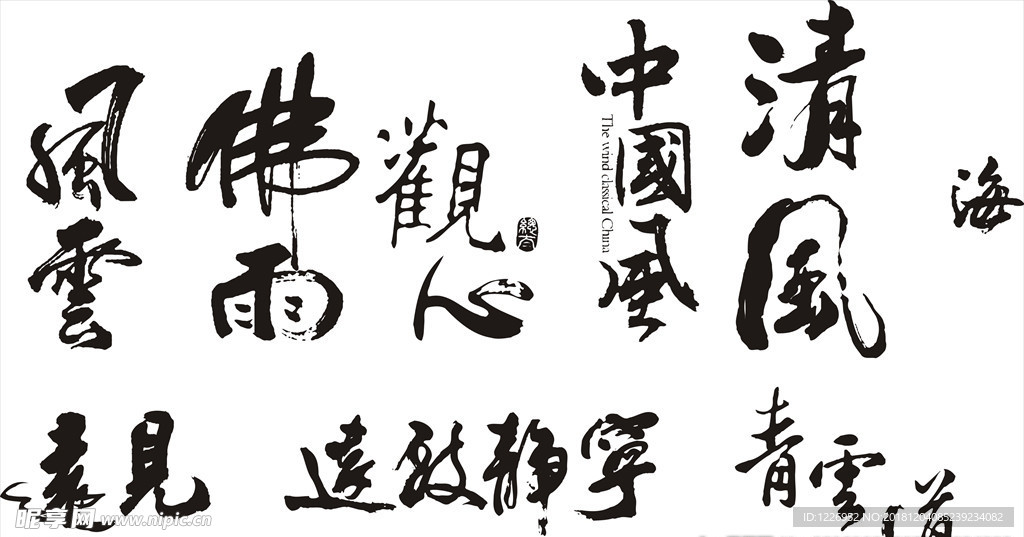 風雲
佛雨
觀心
中國風
The wind classical China
清風
海
遠見
遠致静寧
青雲
昵享网 www.nipic.cn
ID:1226952 NO:20181204085239234082